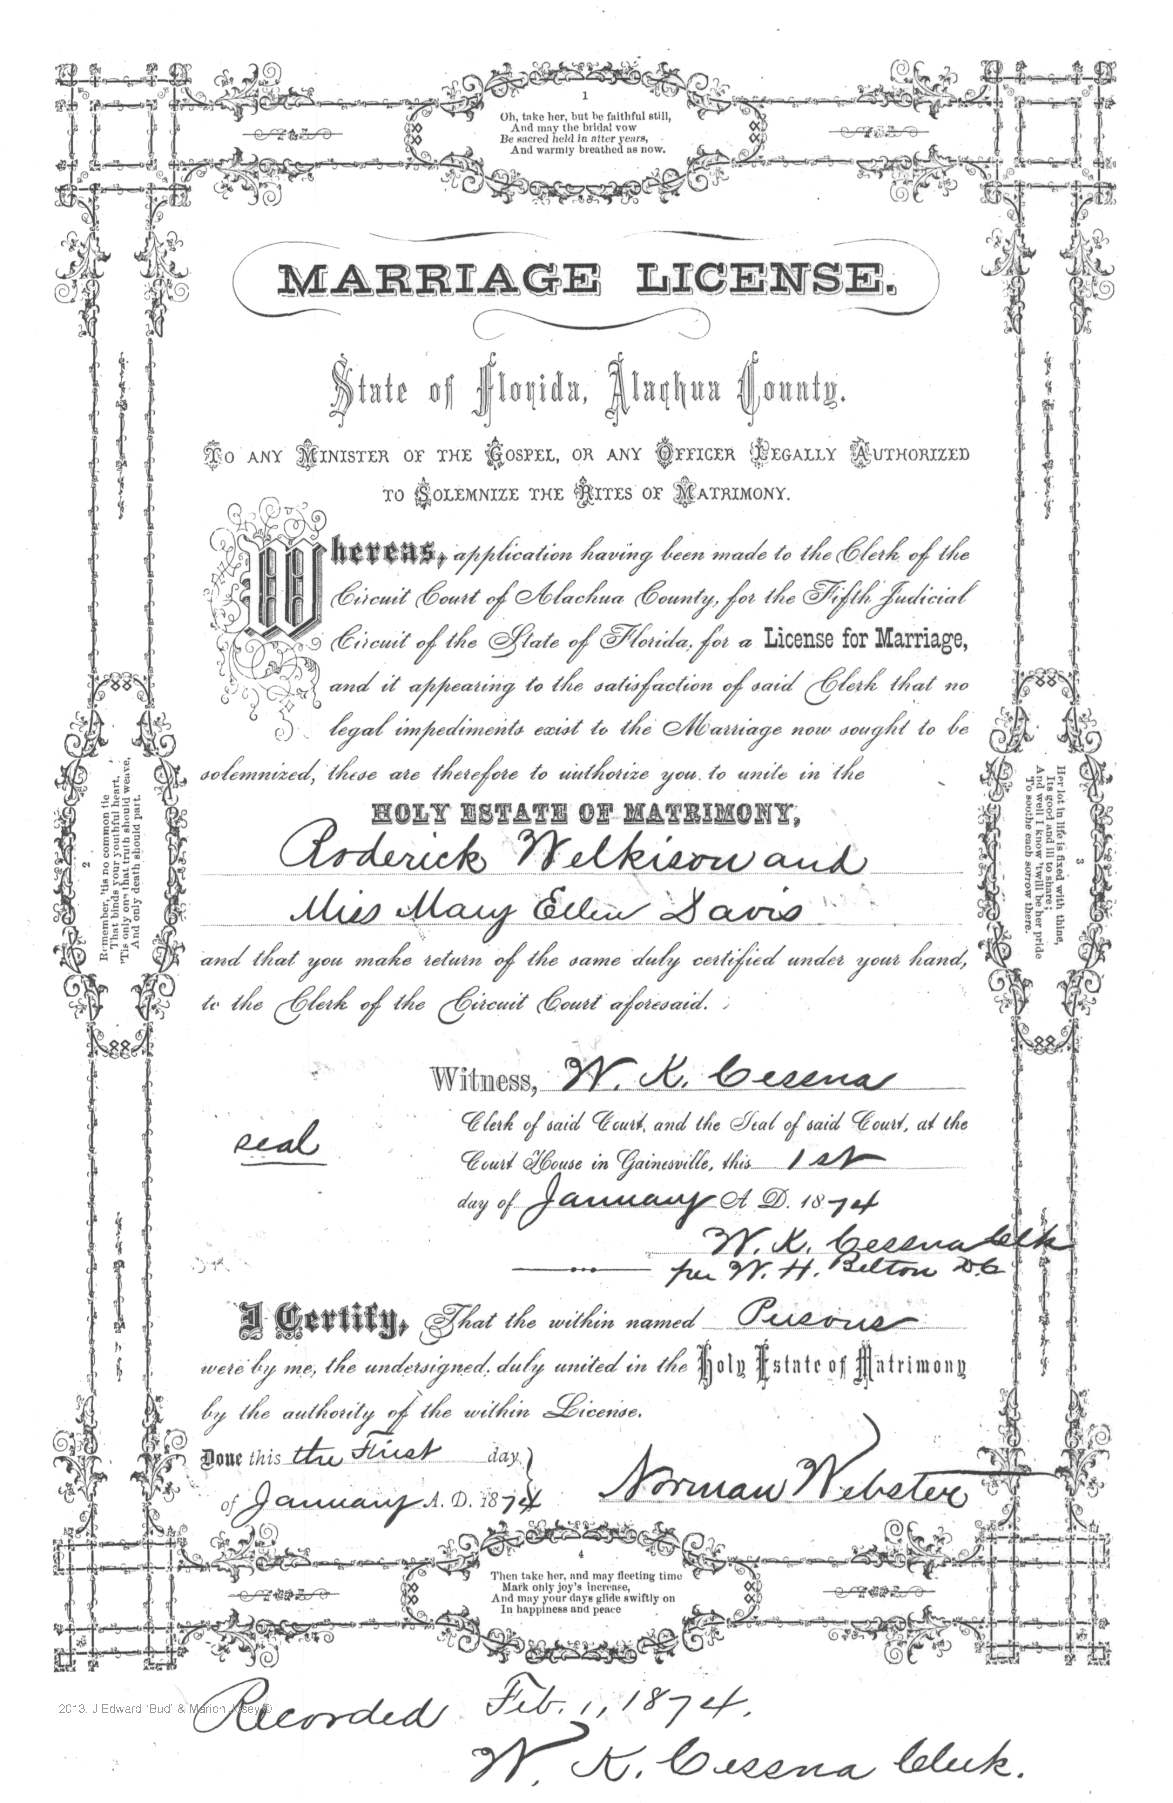 1
Oh, take her, but be faithful still,
And may the bridal vow
Be sacred held in after years,
And warmly breathed as now.
MARRIAGE LICENSE.
State of Florida, Alachua County.
TO ANY MINISTER OF THE GOSPEL, OR ANY OFFICER LEGALLY AUTHORIZED
TO SOLEMNIZE THE RITES OF MATRIMONY.
Whereas, application having been made to the Clerk of the
Circuit Court of Alachua County, for the Fifth Judicial
Circuit of the State of Florida, for a License for Marriage,
and it appearing to the satisfaction of said Clerk that no
legal impediments exist to the Marriage now sought to be
solemnized, these are therefore to authorize you to unite in the
HOLY ESTATE OF MATRIMONY,
Roderick Welkison and
Miss Mary Ellen Davis
and that you make return of the same duly certified under your hand,
to the Clerk of the Circuit Court aforesaid.
2
Remember, 'tis no common tie
That binds your youthful heart,
'Tis only one that truth should weave,
And only death should part.
3
Her lot in life is fixed with thine,
Its good and ill to share;
And well I know 'twill be her pride
To soothe each sorrow there.
Witness, W. K. Cessna
Clerk of said Court, and the Seal of said Court, at the
seal
Court House in Gainesville, this 1st
day of January A. D. 1874
W. K. Cessna Clk
per W. H. Belton D.C
I Certify, That the within named Persons
were by me, the undersigned, duly united in the Holy Estate of Matrimony
by the authority of the within License.
Done this the First day
of January A. D. 1874
Norman Webster
4
Then take her, and may fleeting time
Mark only joy's increase,
And may your days glide swiftly on
In happiness and peace
2013, J Edward 'Bud' & Marion ©
Recorded Feb. 1, 1874.
W. K. Cessna Clerk.